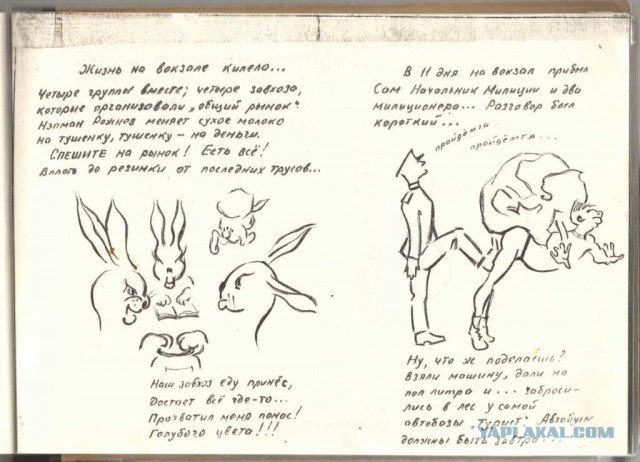 Жизнь на вокзале кипела...
Четыре группы вместе; четыре завхоза,
которые организовали „общий рынок"
Нэпман Рожнев меняет сухое молоко
на тушенку, тушенку – на деньги.
Спешите на рынок! Есть всё!
Вплоть до резинки от последних трусов...
Наш завхоз еду принёс,
Достает всё где-то...
Прохватил меня понос!
Голубого цвета!!!
В 11 дня на вокзал прибыл
Сам Начальник Милиции и два
милиционера... Разговор был
короткий...
пройдёмти...
пройдемтя...
Ну, что ж поделаешь?
Взяли машину, дали на
пол литра и... заброси-
лись в лес у самой
автобазы „Турист" Автобусы
должны быть завтра...
YAPLAKAL.COM